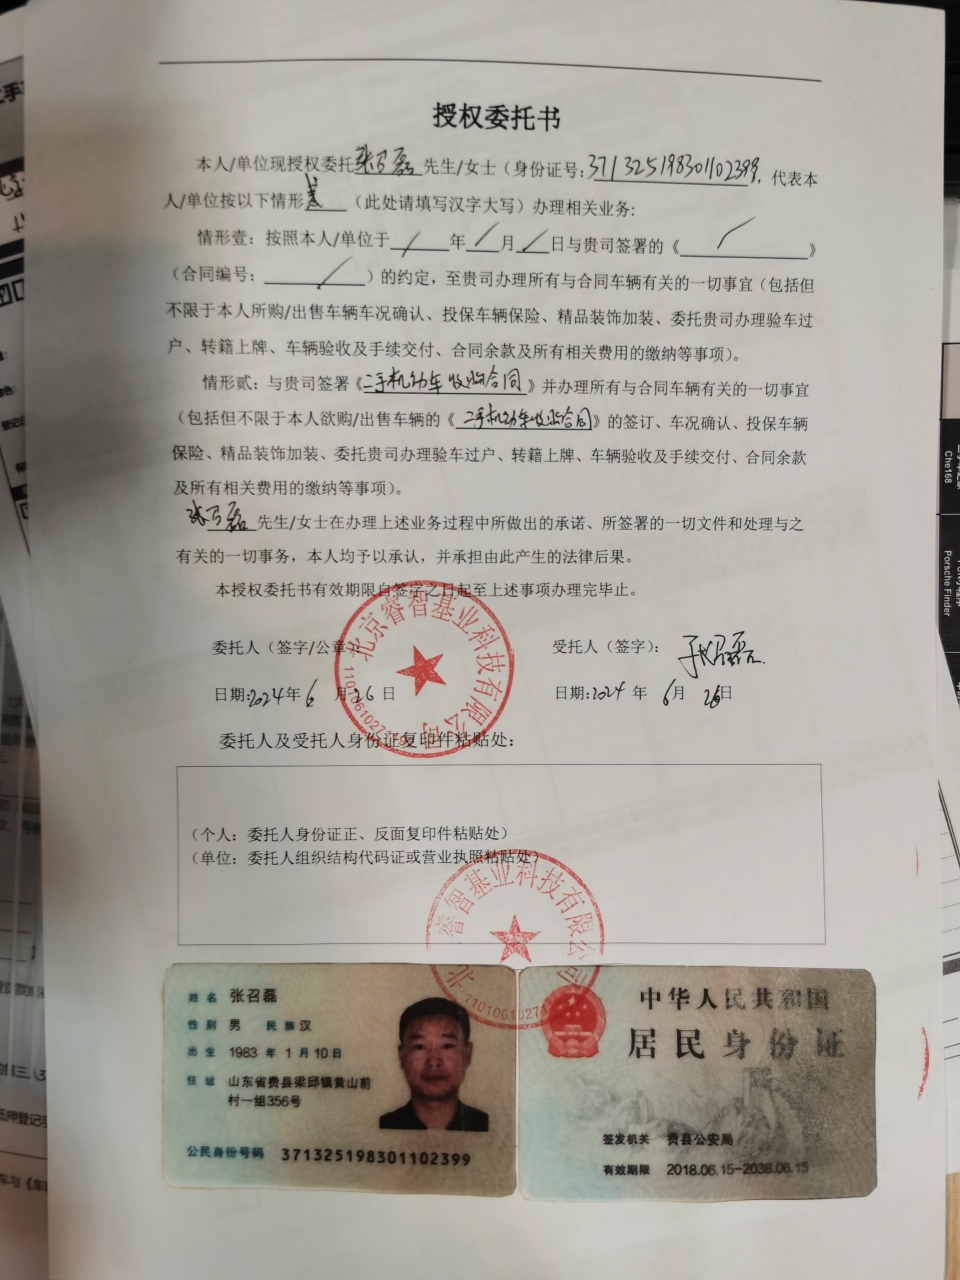 授权委托书
本人/单位现授权委托张召磊先生/女士（身份证号：371325198301102399，代表本
人/单位按以下情形贰（此处请填写汉字大写）办理相关业务：
情形壹：按照本人/单位于/年/月/日与贵司签署的《/》
（合同编号：/）的约定，至贵司办理所有与合同车辆有关的一切事宜（包括但
不限于本人所购/出售车辆车况确认、投保车辆保险、精品装饰加装、委托贵司办理验车过
户、转籍上牌、车辆验收及手续交付、合同余款及所有相关费用的缴纳等事项）。
情形贰：与贵司签署《二手机动车收购合同》并办理所有与合同车辆有关的一切事宜
（包括但不限于本人欲购/出售车辆的《二手机动车收购合同》的签订、车况确认、投保车辆
保险、精品装饰加装、委托贵司办理验车过户、转籍上牌、车辆验收及手续交付、合同余款
及所有相关费用的缴纳等事项）。
张召磊先生/女士在办理上述业务过程中所做出的承诺、所签署的一切文件和处理与之
有关的一切事务，本人均予以承认，并承担由此产生的法律后果。
本授权委托书有效期限自签字之日起至上述事项办理完毕止。
委托人（签字/公章）：
受托人（签字）：张召磊
日期：2024年6月26日
日期：2024年6月26日
北京睿智基业科技有限公司
委托人及受托人身份证复印件粘贴处：
（个人：委托人身份证正、反面复印件粘贴处）
（单位：委托人组织结构代码证或营业执照粘贴处）
睿智基业科技有限公司
姓名 张召磊
性别 男 民族 汉
出生 1983年1月10日
住址 山东省费县梁邱镇黄山前
村一组356号
公民身份号码 371325198301102399
中华人民共和国
居民身份证
签发机关 费县公安局
有效期限 2018.06.15-2038.06.15
Che168
Porsche Finder